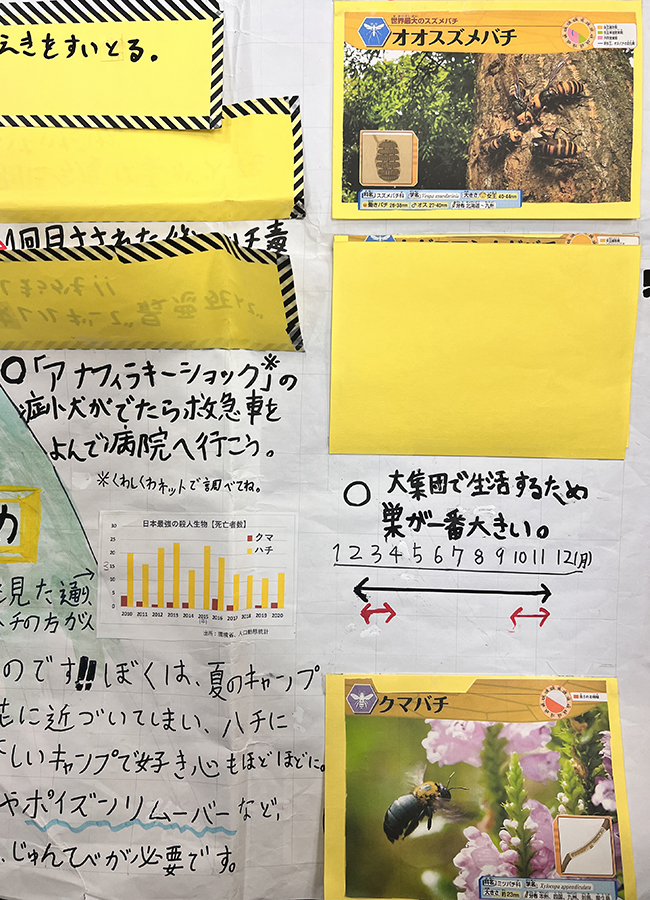 えきをすいとる。
1回目さされた
チ毒
「アナフィラキーショック」※の
症状がでたら救急車を
よんで病院へ行こう。
※くわしくわネットで調べてね。
日本最強の殺人生物【死亡者数】
クマ
ハチ
30
25
20
15
10
5
0
2010 2011 2012 2013 2014 2015 2016 2017 2018 2019 2020
出所:環境省、人口動態統計
見た通り
ハチの方が人
のです!!ぼくは、夏のキャンプ
に近づいてしまい、ハチに
しいキャンプで好き心もほどほどに。
やポイズンリムーバーなど、
じゅんびが必要です。
世界最大のスズメバチ
オオスズメバチ
科名 スズメバチ科 学名 Vespa mandarinia 大きさ 女王 40-44mm
働きバチ 26-38mm オス 27-40mm 分布 北海道〜九州
大集団で生活するため
巣が一番大きい。
1 2 3 4 5 6 7 8 9 10 11 12(月)
クマバチ
科名 ミツバチ科 学名 Xylocopa appendiculata
大きさ 約23mm 分布 本州、四国、九州